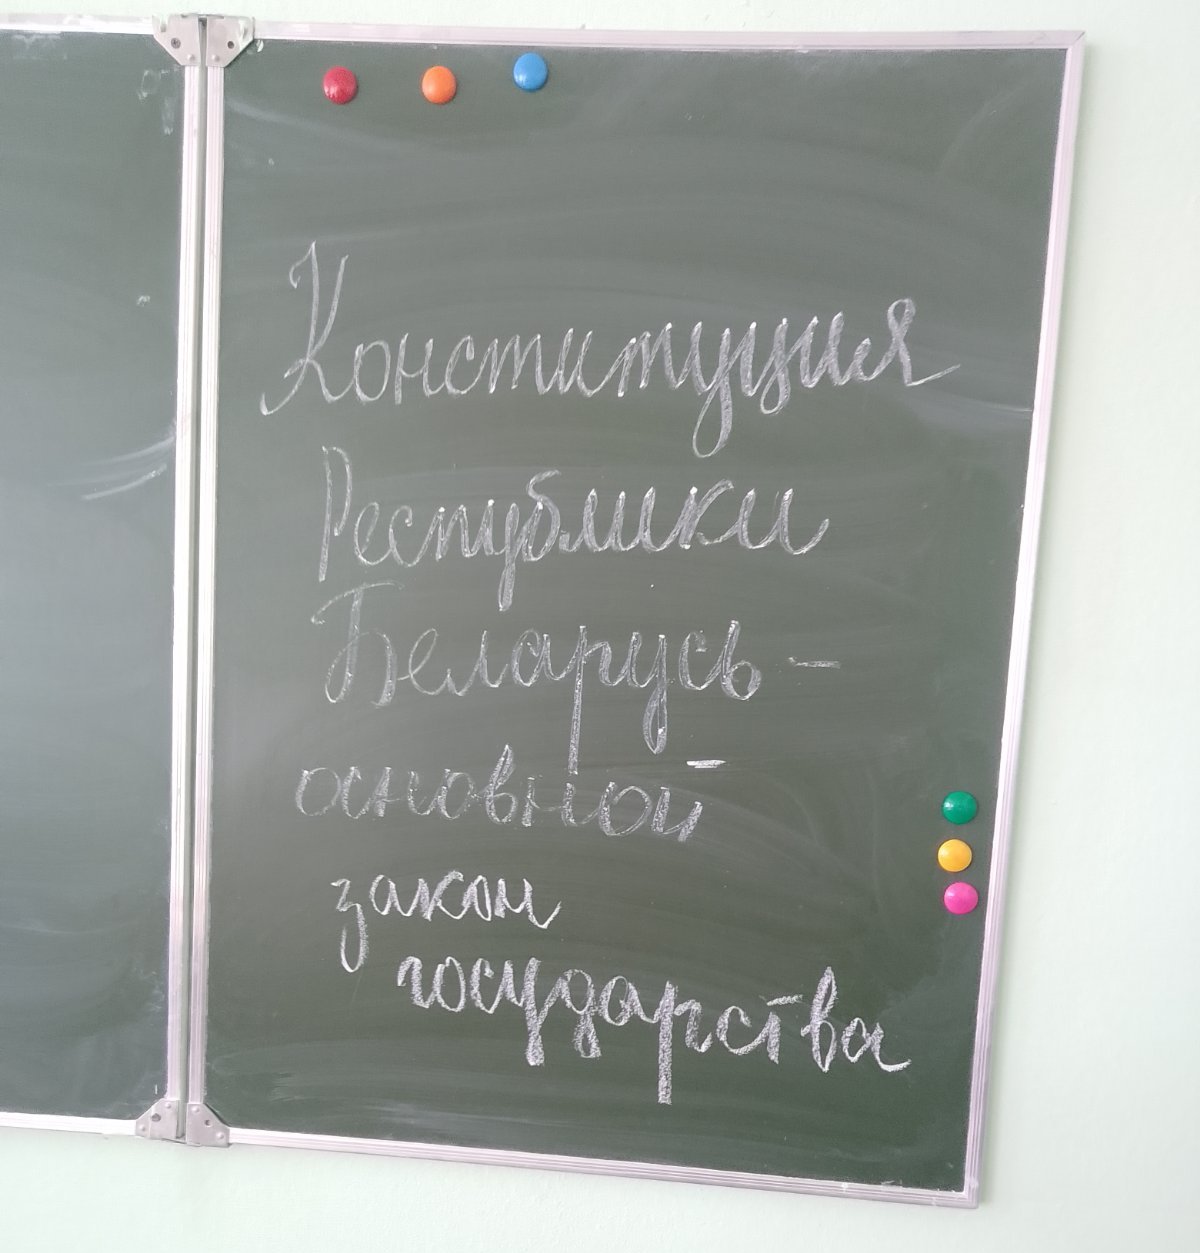 Конституция
Республики
Беларусь –
основной
закон
государства